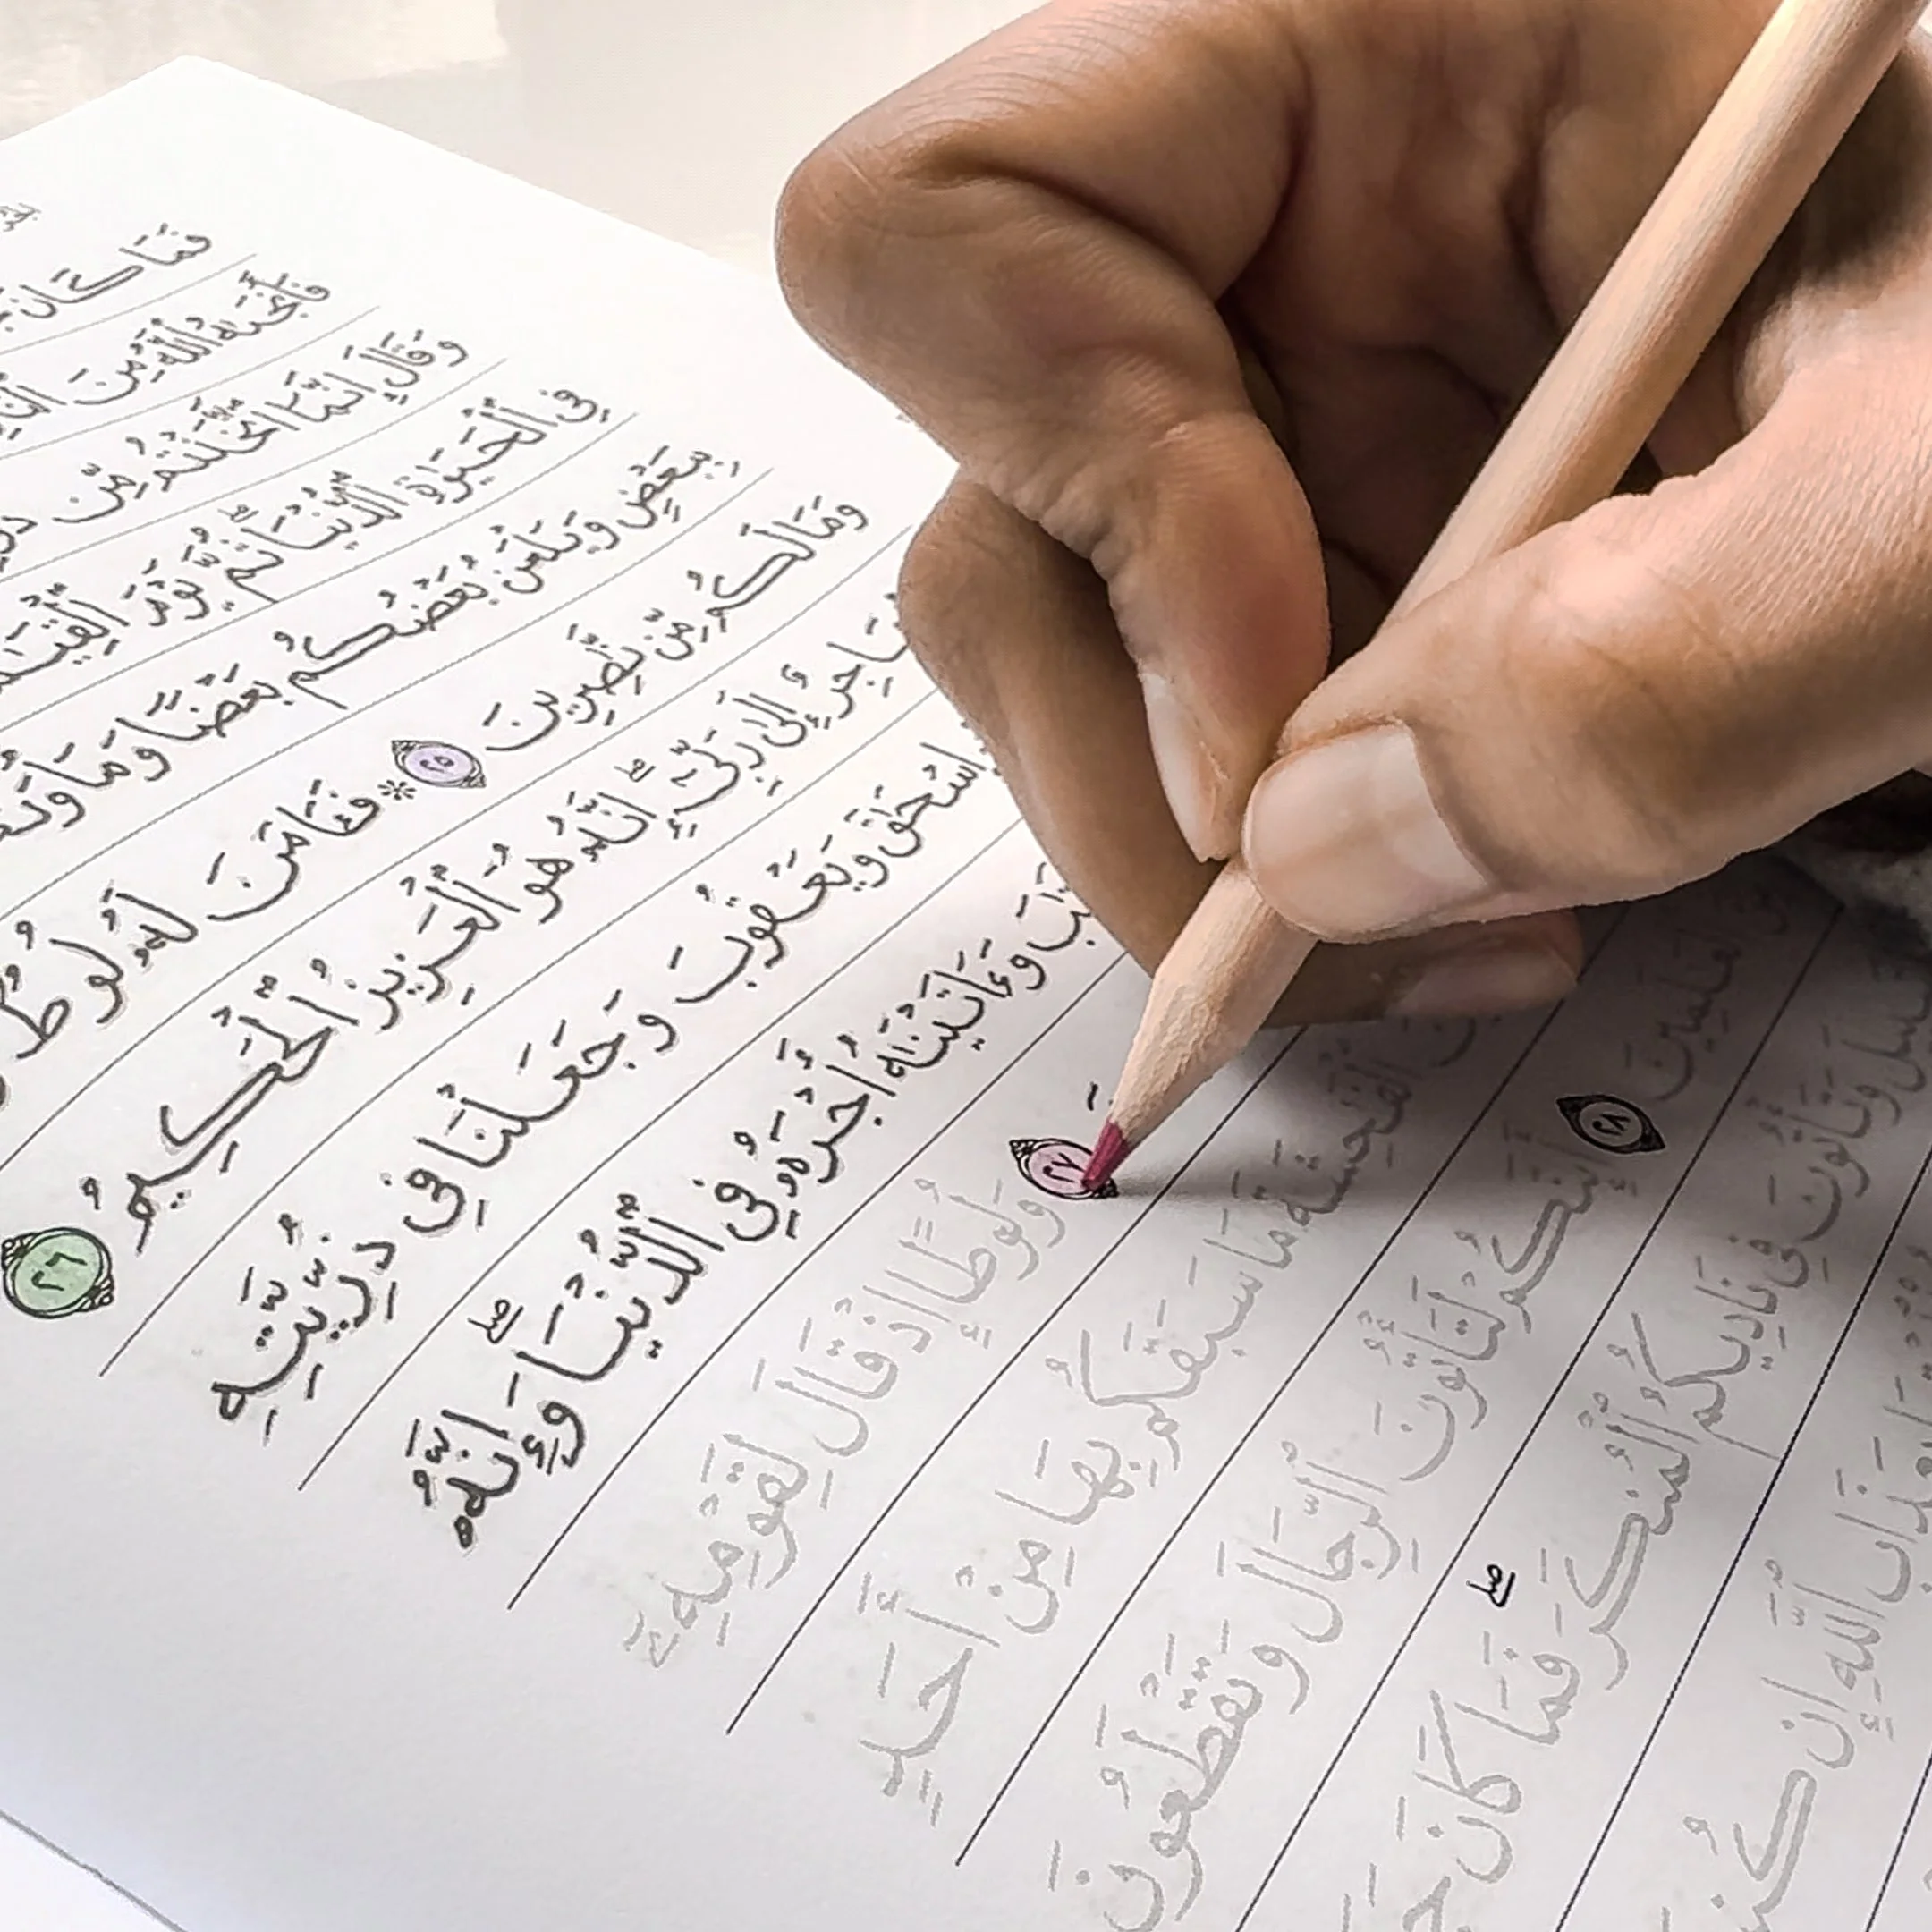 فَمَا كَانَ
فَأَنجَىٰهُ ٱللَّهُ مِنَ
وَقَالَ إِنَّمَا ٱتَّخَذْتُم مِّن
فِى ٱلْحَيَوٰةِ ٱلدُّنْيَا ۖ ثُمَّ يَوْمَ
بِبَعْضٍ وَيَلْعَنُ بَعْضُكُم بَعْضًا
وَمَا لَكُم مِّن نَّـٰصِرِينَ ٢٥ * فَـَٔامَنَ لَهُۥ لُوطٌ
إِلَىٰ رَبِّىٓ ۖ إِنَّهُۥ هُوَ ٱلْعَزِيزُ ٱلْحَكِيمُ ٢٦
إِسْحَـٰقَ وَيَعْقُوبَ وَجَعَلْنَا فِى ذُرِّيَّتِهِ
وَءَاتَيْنَـٰهُ أَجْرَهُۥ فِى ٱلدُّنْيَا ۖ وَإِنَّهُۥ
٢٧ وَلُوطًا إِذْ قَالَ لِقَوْمِهِۦٓ
ٱلْفَـٰحِشَةَ مَا سَبَقَكُم بِهَا مِنْ أَحَدٍ
ٱلْعَـٰلَمِينَ ٢٨ أَئِنَّكُمْ لَتَأْتُونَ ٱلرِّجَالَ وَتَقْطَعُونَ
وَتَأْتُونَ فِى نَادِيكُمُ ٱلْمُنكَرَ ۖ فَمَا كَانَ
بِعَذَابِ ٱللَّهِ إِن